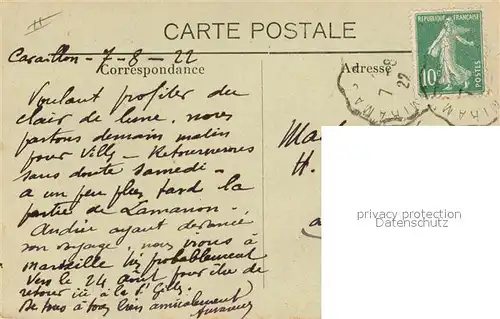 CARTE POSTALE
REPUBLIQUE FRANÇAISE
10c
POSTES
Cavaillon - 7-8-22
Correspondance
Adresse
MIRAMAS
7 8
22
Voulant profiter du
clair de lune, nous
partons demain matin
pour Villy - Retournerons
sans doute samedi -
a un peu plus tard la
partie de Lamanon -
Andrée ayant devancé
son voyage, nous irons à
Marseille très probablement
Vers le 24 août pour être de
retour ici à la St Gilles
De nous à tous bien amicalement
H.
privacy protection
watermark